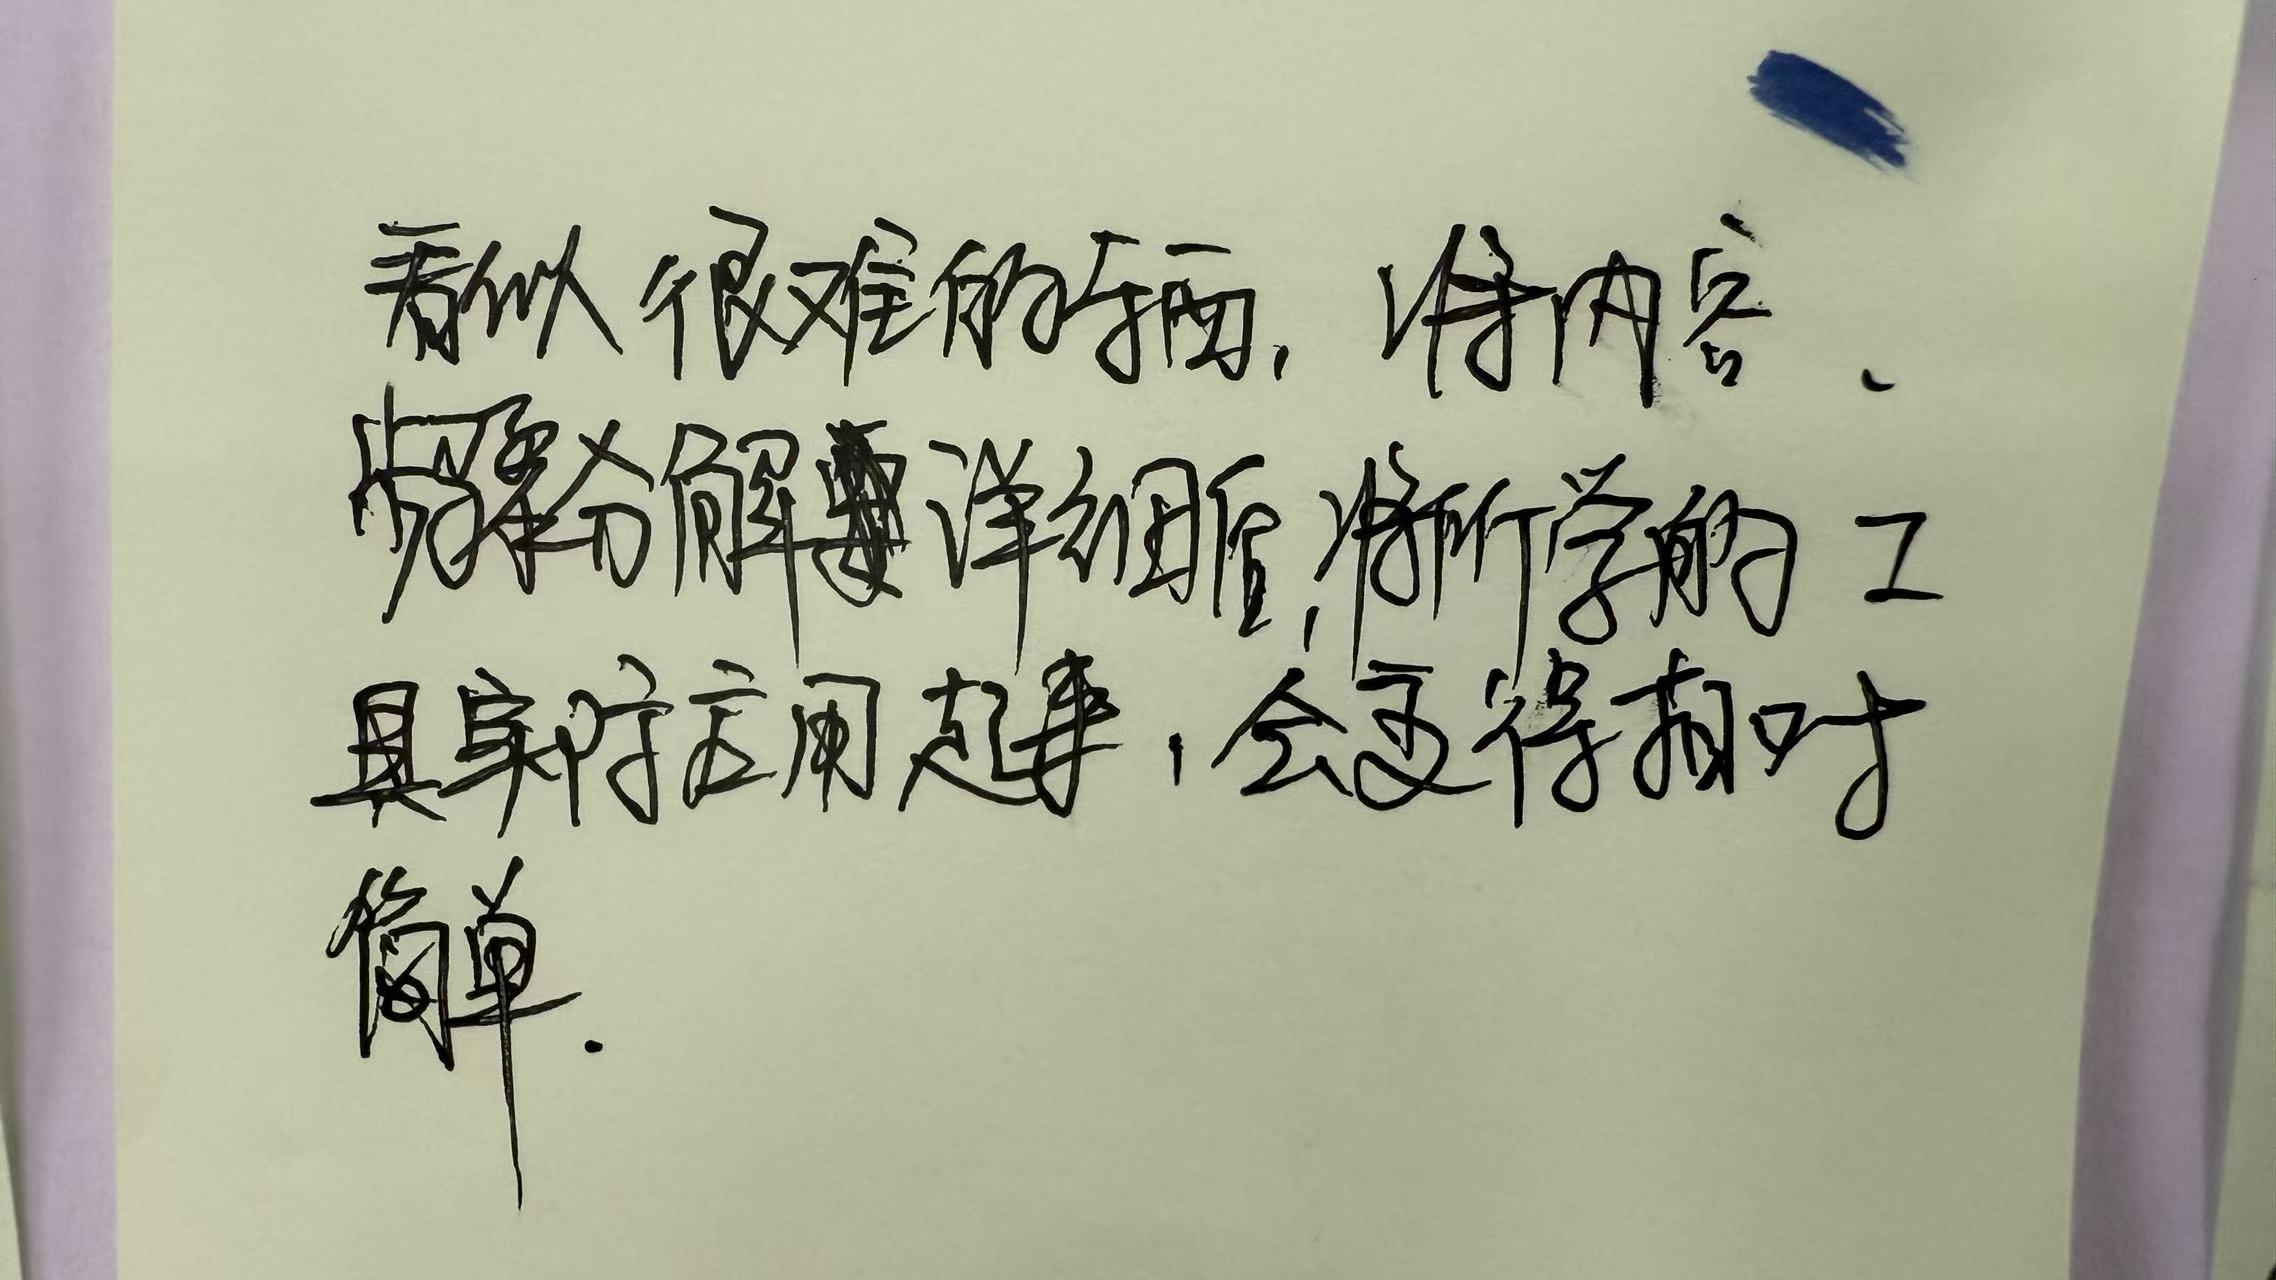 看似很难的东西，将内容、
步骤分解要详细后，将所学的工
具实际应用起来，会变得相对
简单.